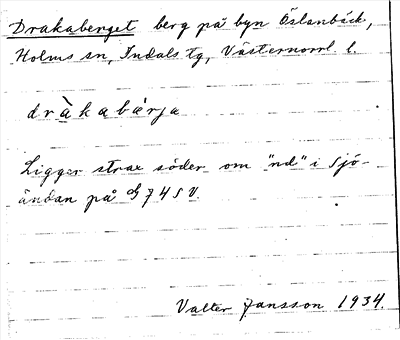 Drakaberget berg på byn Öslanbäck,
Holms sn, Indals tg, Västernorrl. l.
dràkabárja
Ligger strax söder om "nd" i Sjö-
ändan på GJ 74 SV.
Valter Jansson 1934.